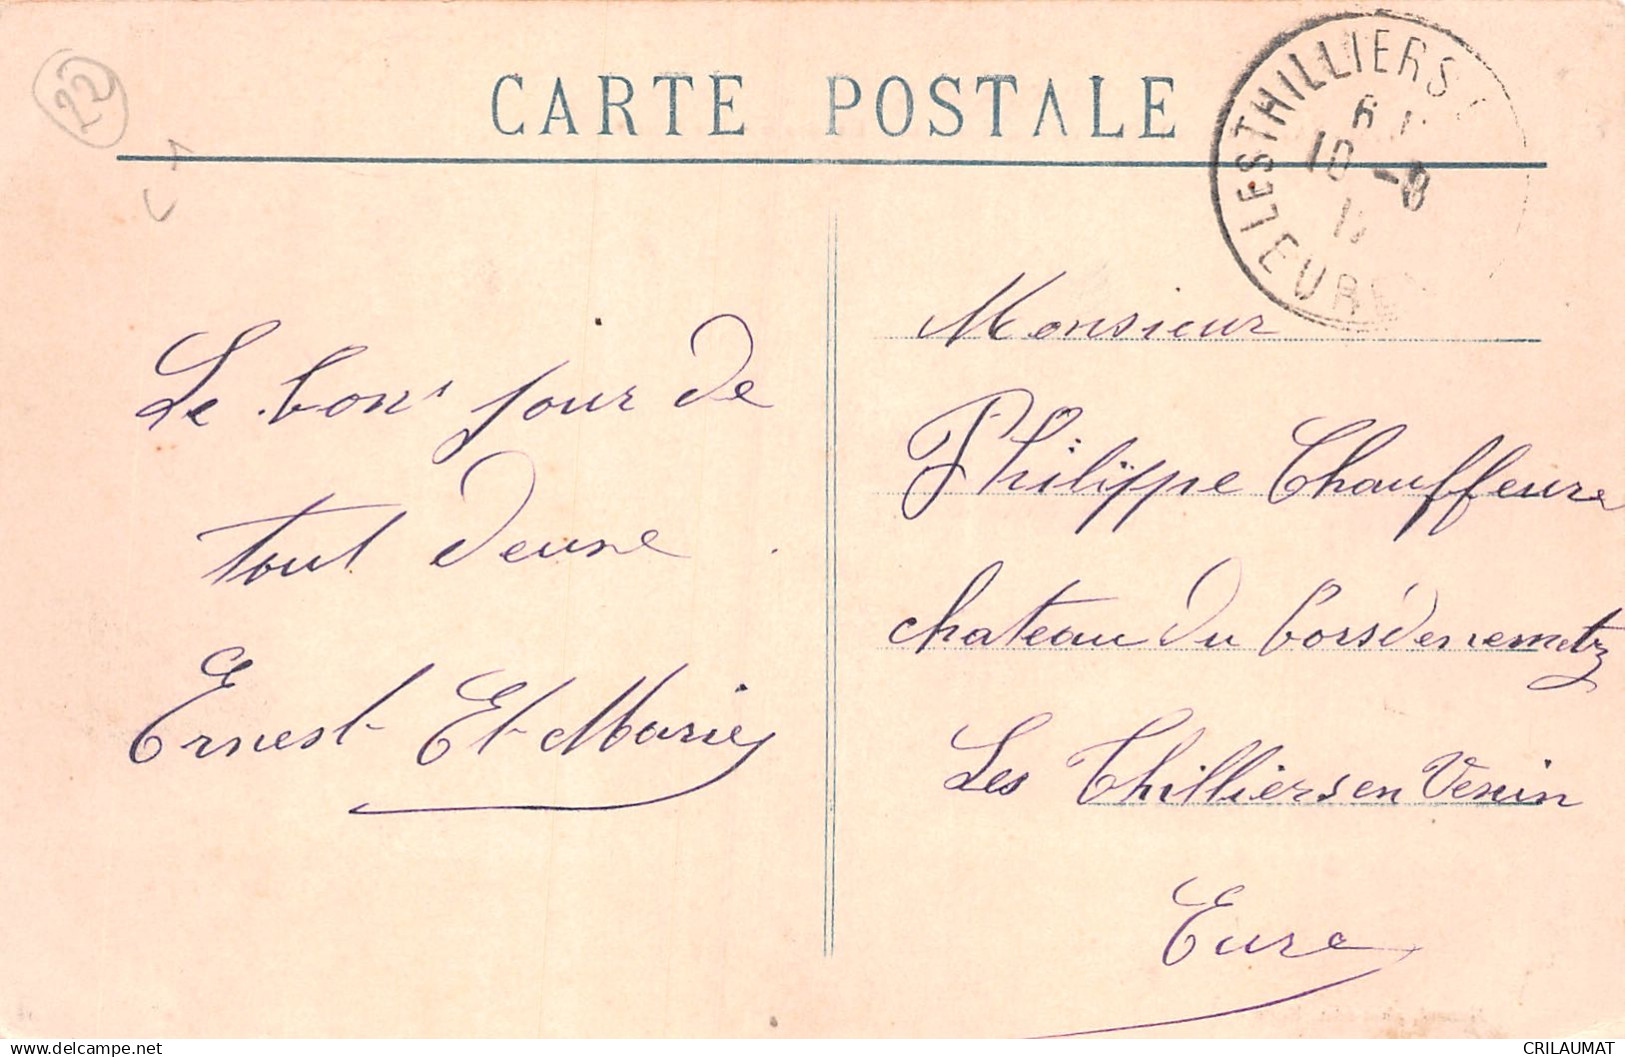 22
CARTE POSTALE
LES THILLIERS
EURE
10 -8
Le bon jour de
tout deune
Ernest Et Marie
Monsieur
Philippe Chauffeure
chateau du
Les Thilliers en Venin
Eure
www.delcampe.net
CRILAUMAT